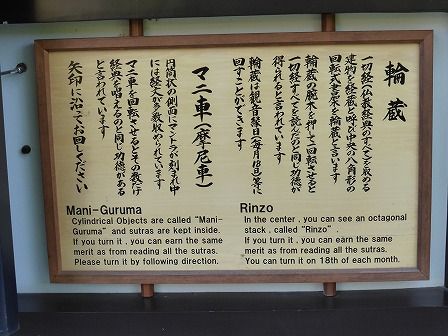 輪蔵
一切経(仏教経典のすべて)を収める
建物を経蔵と呼び中央の八角形の
回転式書架を輪蔵と言います
輪蔵の腕木を押して一回転させると
一切経すべてを読んだのと同じ功徳が
得られると言われています
輪蔵は観音縁日(毎月18日)等に
回すことができます
マニ車(摩尼車)
円筒状の側面にマントラが刻まれ中
には経文が多数収められています
マニ車を回転させるとその数だけ
経典を唱えるのと同じ功徳がある
と言われています
矢印に沿ってお回しください
Mani-Guruma
Cylindrical Objects are called "Mani-
Guruma" and sutras are kept inside.
If you turn it , you can earn the same
merit as from reading all the sutras.
Please turn it by following direction.
Rinzo
In the center , you can see an octagonal
stack , called "Rinzo" .
If you turn it , you can earn the same
merit as from reading all the sutras.
You can turn it on 18th of each month.